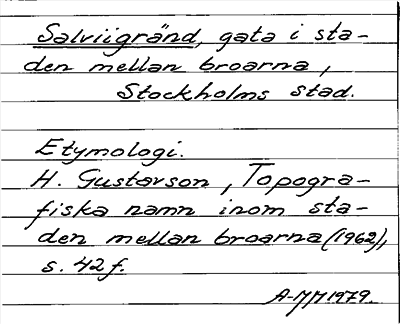 Salviigränd, gata i sta-
den mellan broarna,
Stockholms stad.
Etymologi.
H. Gustavson, Topogra-
fiska namn inom sta-
den mellan broarna (1962),
s. 42 f.
A-MM 1979.